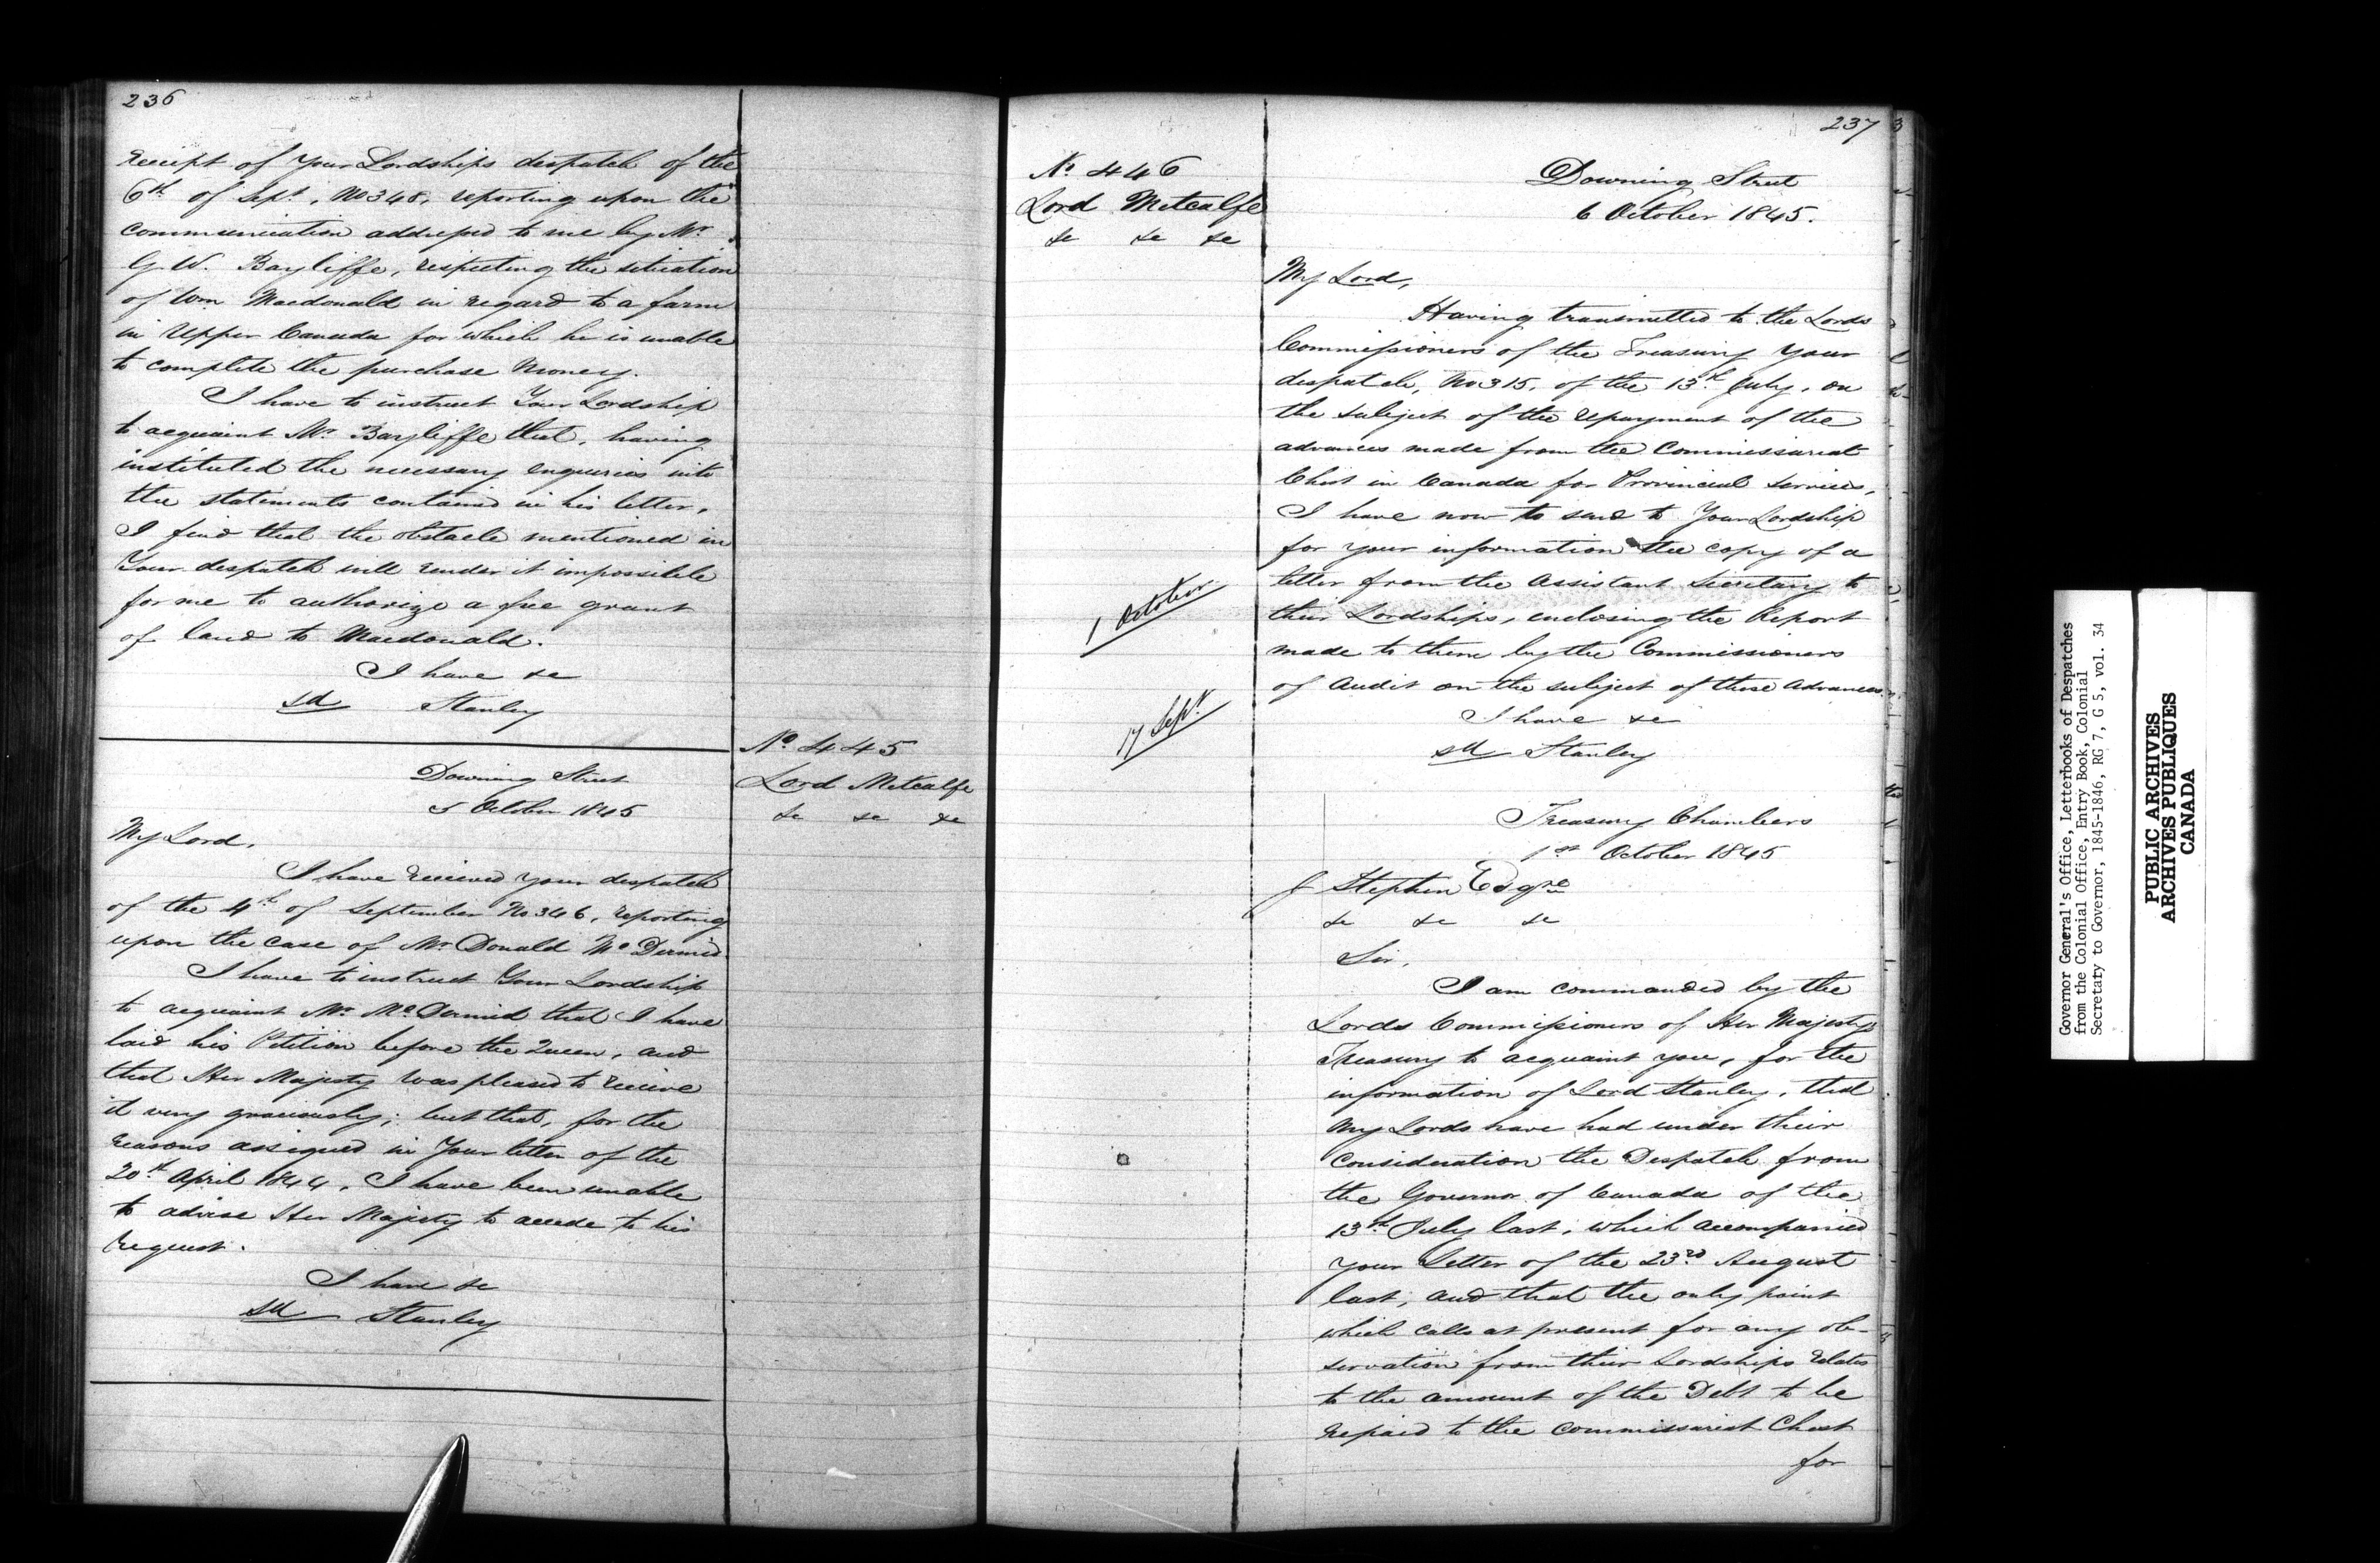 236
receipt of Your Lordships despatch of the
6th of Sept, No 348, reporting upon the
communication addressed to me by Mr
G. W. Bayliffe, respecting the situation
of Wm Macdonald in regard to a farm
in Upper Canada for which he is unable
to complete the purchase Money.
I have to instruct Your Lordship
to acquaint Mr Bayliffe that, having
instituted the necessary enquiries into
the statements contained in his letter,
I find that the obstacle mentioned in
Your despatch will render it impossible
for me to authorize a free grant
of land to Macdonald.
I have &c
sd Stanley
No 445
Lord Metcalfe
&c &c &c
Downing Street
5 October 1845
My Lord,
I have received your despatch
of the 4th of September No 346, reporting
upon the case of Mr Donald McDermid
I have to instruct Your Lordship
to acquaint Mr McDermid that I have
laid his Petition before the Queen, and
that Her Majesty was pleased to receive
it very graciously; but that, for the
reasons assigned in Your letter of the
20th April 1844, I have been unable
to advise Her Majesty to accede to his
request.
I have &c
sd Stanley
237
No 446
Lord Metcalfe
&c &c &c
Downing Street
6 October 1845.
My Lord,
Having transmitted to the Lords
Commissioners of the Treasury Your
despatch, No 315, of the 13th July, on
the subject of the repayment of the
advances made from the Commissariat
Chest in Canada for Provincial services,
I have now to send to Your Lordship
for your information the copy of a
letter from the Assistant Secretary to
1 October
their Lordships, enclosing the Report
made to them by the Commissioners
of Audit on the subject of those advances.
17 Sept
I have &c
sd Stanley
Treasury Chambers
1st October 1845
J Stephen Esqre
&c &c &c
Sir,
I am commanded by the
Lords Commissioners of Her Majestys
Treasury to acquaint you, for the
information of Lord Stanley, that
My Lords have had under their
consideration the Despatch from
the Governor of Canada of the
13th July last, which accompanied
your Letter of the 23rd August
last, and that the only point
which calls at present for any ob-
servation from their Lordships relates
to the amount of the Debt to be
repaid to the Commissariat Chest
for
Governor General's Office, Letterbooks of Despatches
from the Colonial Office, Entry Book, Colonial
Secretary to Governor, 1845-1846, RG 7, G 5, vol. 34
PUBLIC ARCHIVES
ARCHIVES PUBLIQUES
CANADA